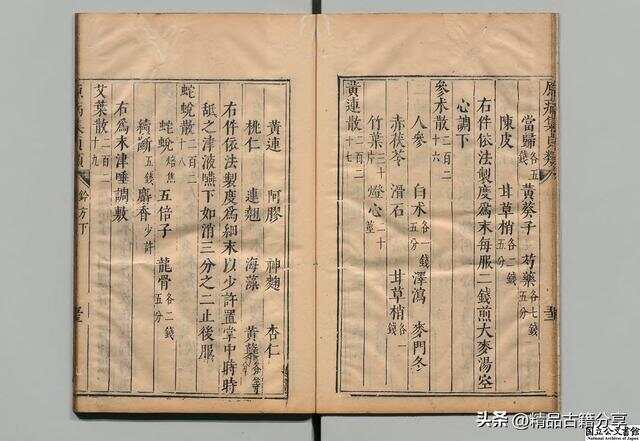 原病集貞類
當歸各五錢 黃葵子 芍藥各七錢五分
陳皮 甘草梢各二錢五分
右件依法製度爲末每服二錢煎大麥湯空
心調下
參朮散二百二十六
人參 白朮各一錢五分 澤瀉 麥門冬
赤茯苓 滑石 甘草梢各一錢
竹葉三十片 燈心二十莖
黃連散二百二十七
黃連 阿膠 神麯 杏仁
桃仁 連翹 海藻 黃蘗
右件依法製度爲細末以少許置掌中時時
舐之津液嚥下如消三分之二止後服
蛇蛻散二百二十八
蛇蛻焙焦 五倍子 龍骨各二錢五分
續斷五錢 麝香少許
右爲末津唾調敷
艾葉散二百二十九
鈐方下
头条 @精品古籍分享
国立公文書館
National Archives of Japan